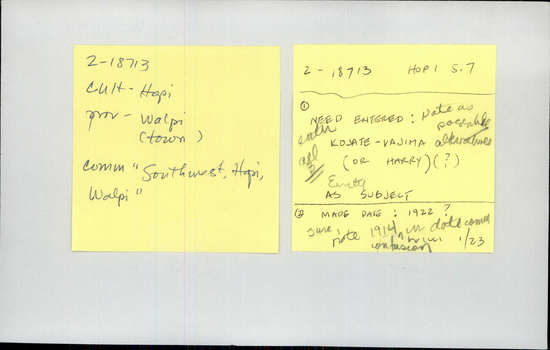 2-18713
Cult- Hopi
prov- Walpi
(town)
comm "Southwest, Hopi,
Walpi"
2-18713 HOPI S.7
① NEED ENTERED: Note as
possible
enter
all
3
KOJATE-VAJIMA alternatives
(OR HARRY)(?)
AS SUBJECT
② MADE DATE: 1922?
sure,
note 1914 in date comm
confusion 1/23